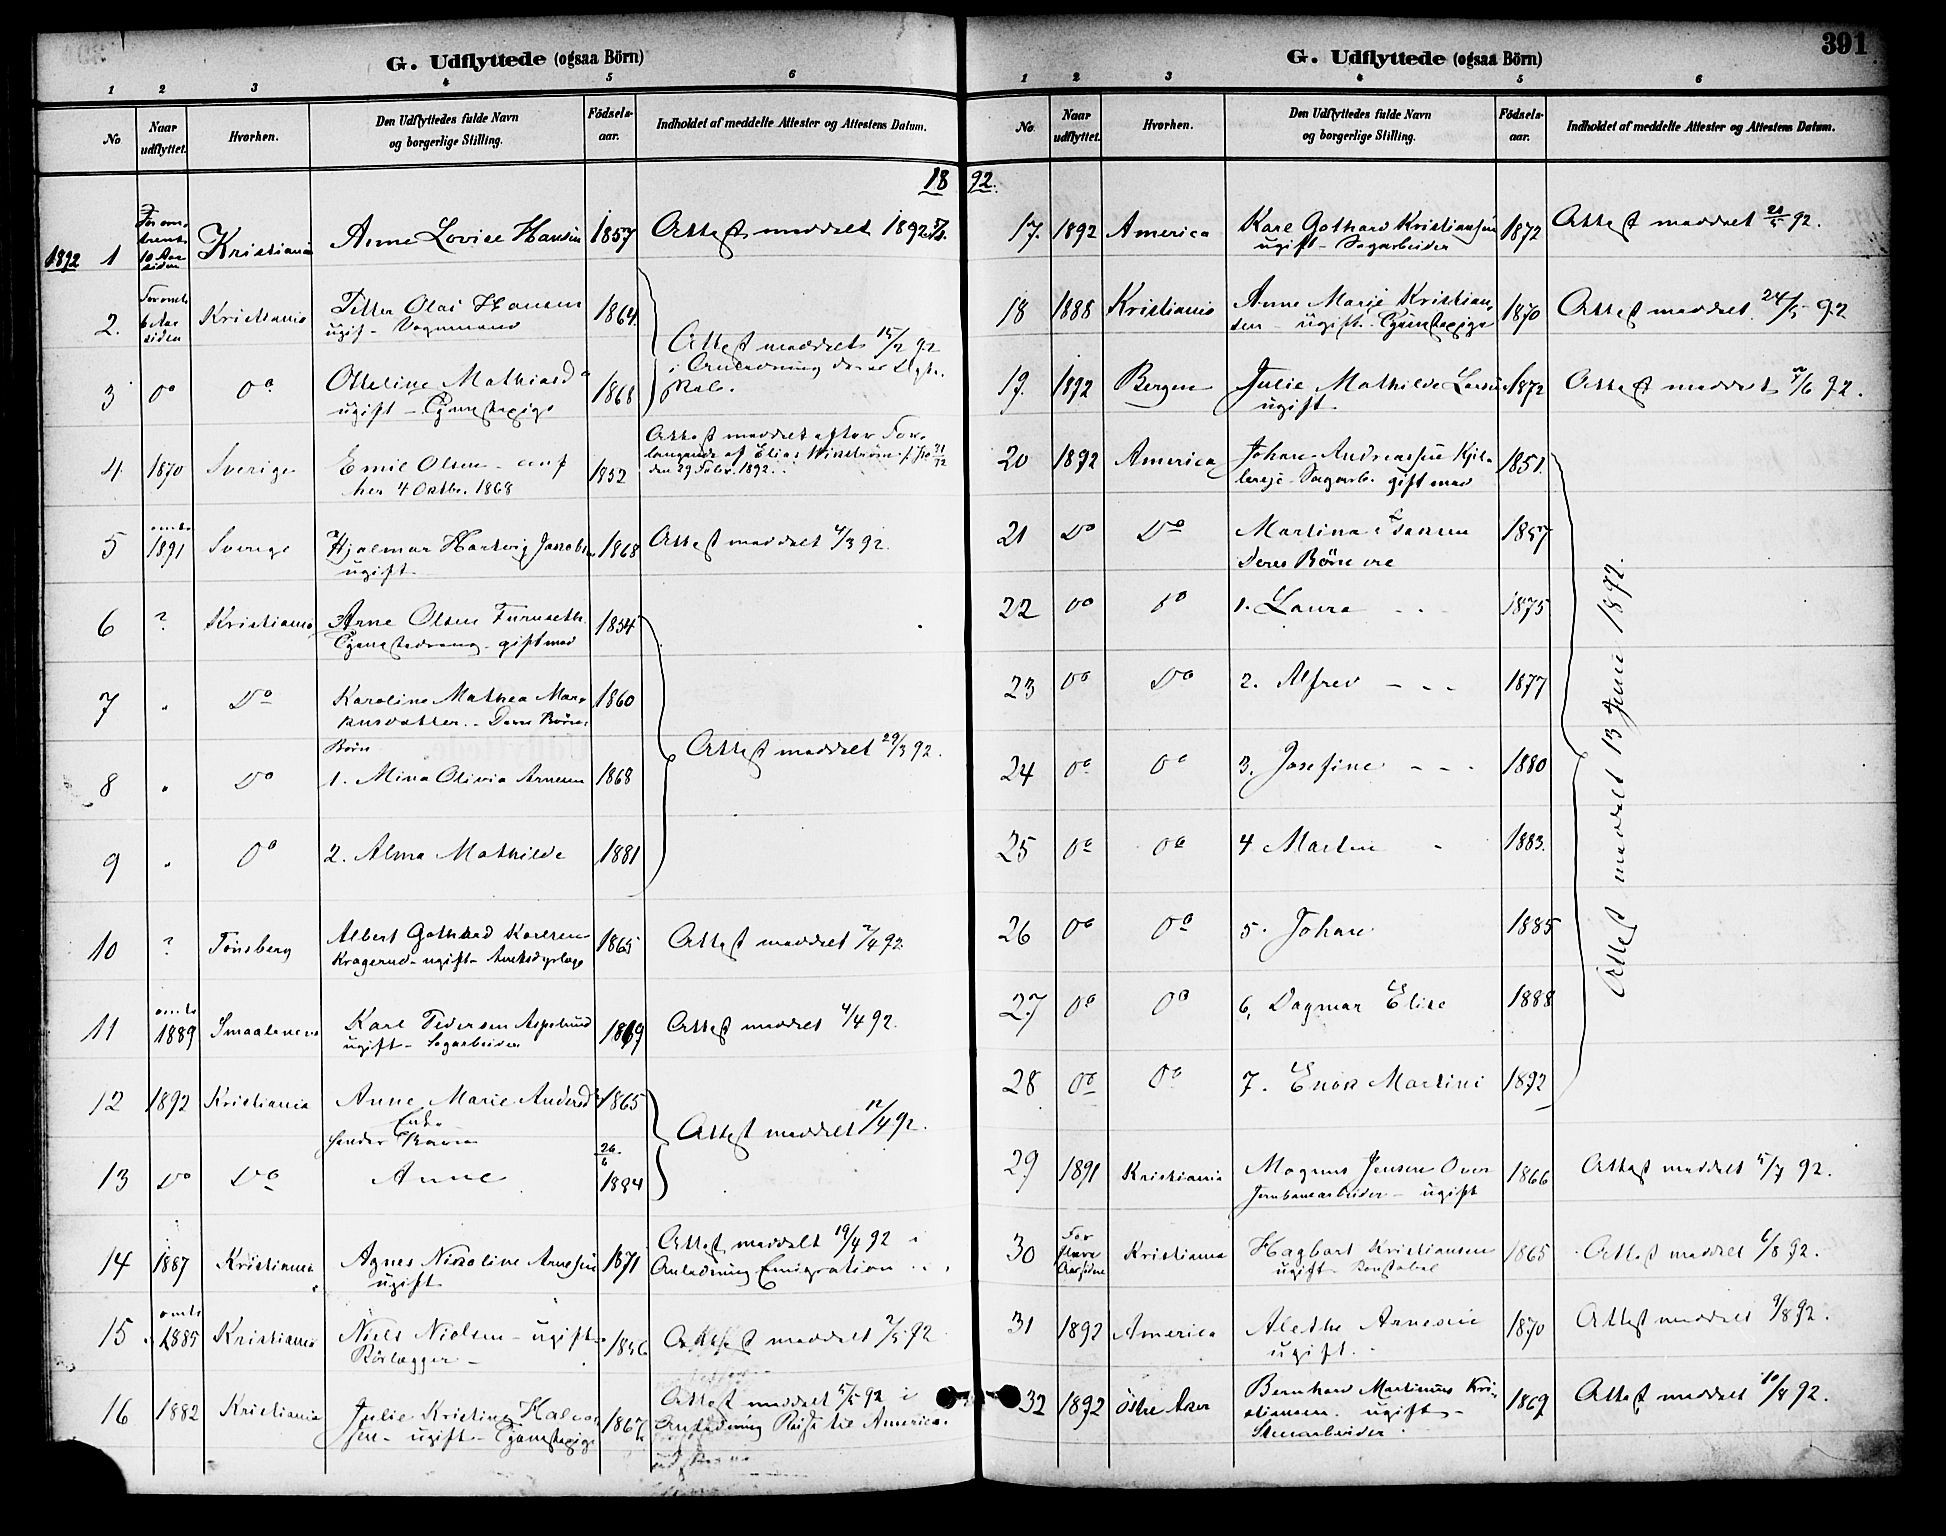 G. Udflyttede (ogsaa Börn)
1 2 3 4 5 6
No Naar udflyttet. Hvorhen. Den Udflyttedes fulde Navn og borgerlige Stilling. Födsels-aar. Indholdet af meddelte Attester og Attestens Datum.
18
1892 1 10 Aar siden Kristiania Anne Lovise Hansen 1857 Attest meddelt 1892
2. 6 Aar siden Kristiania Petter Olai Hansen 1864.
ugift - Vognmand
Attest meddelt 15/2 92
i Anledning
3 Do Do Otteline Mathiasd 1868
ugift - Tjenestepige
4 1870 Sverige Emil Olsen 1852 Attest meddelt efter For-
langende af Elias
her 4 Octbr. 1868 den 29 Febr. 1892
5 omtr 1891 Sverige Hjalmar Hartvig Jacobsen 1868 Attest meddelt 4/3 92.
ugift.
6 ? Kristiania Arne Olsen Furuseth 1854
Tjenestedreng - gift med
7 " Do Karoline Mathea 1860
Deres Børn
Børn
Attest meddelt 29/3 92.
8 " Do 1. Mina Olivia Arnesen 1868
9 " Do 2. Alma Mathilde 1881
10 ? Tönsberg Albert Gothard Karlsen 1865 Attest meddelt 2/4 92
Kragerud - ugift
11 omtr 1889 Smaalenene Karl Pedersen Aspelund 1869 Attest meddelt 4/4 92.
ugift - Sagarbeider
12 1892 Kristiania Anne Marie Andersd 1865
Enke
Attest meddelt 12/4 92.
13 Do Do Anne 26/6 1884
14 1887 Kristiania Agnes Nikoline Arnesen 1871 Attest meddelt 19/4 92 i
ugift Anledning Emigration
15 omtr 1885 Kristiania Niels Nielsen - ugift 1856 Attest meddelt 2/5 92
Rörlægger
16 1882 Kristiania Julie Kristine Halvor 1867 Attest meddelt 5/5 92 i
sen - ugift - Tjenestepige Anledning Reise til America.
391
G. Udflyttede (ogsaa Börn)
1 2 3 4 5 6
No. Naar udflyttet. Hvorhen. Den Udflyttedes fulde Navn og borgerlige Stilling. Födsels-aar. Indholdet af meddelte Attester og Attestens Datum.
92.
17. 1892 America Karl Gothard Kristiansen 1872 Attest meddelt 21/5 92.
ugift - Sagarbeider
18 1888 Kristiania Anne Marie Kristian- 1870 Attest meddelt 24/5 92
sen - ugift. Tjenestepige
19. 1892 Bergen Julie Mathilde Larsen 1872 Attest meddelt 7/6 92.
ugift.
20 1892 America Johan Andreassen 1851.
Sagarb. gift med
21 Do Do Martina 1857
Deres Børn ere
22 Do Do 1. Laura 1875
23 Do Do 2. Alfred 1877
24 Do Do 3. Josefine 1880
25 Do Do 4 Martin 1883.
26 Do Do 5. Johan 1885
27 Do Do 6, Dagmar Elise 1888
28 Do Do 7. Enok Martini 1892
Attest meddelt 13 Juni 1892.
29 1891 Kristiania Magnus Jensen Over 1866 Attest meddelt 5/7 92.
Jernbanearbeider - ugift
30 For flere Aar siden Kristiania Hagbart Kristiansen 1865 Attest meddelt 6/8 92.
ugift Konstabel
31 1892 America Alethe Arnesen 1870 Attest meddelt 9/8 92.
ugift.
32 1892 östre Aker Bernhard Martinius Kri- 1869 Attest meddelt 10/8 92.
stiansen. ugift
Stenarbeider.